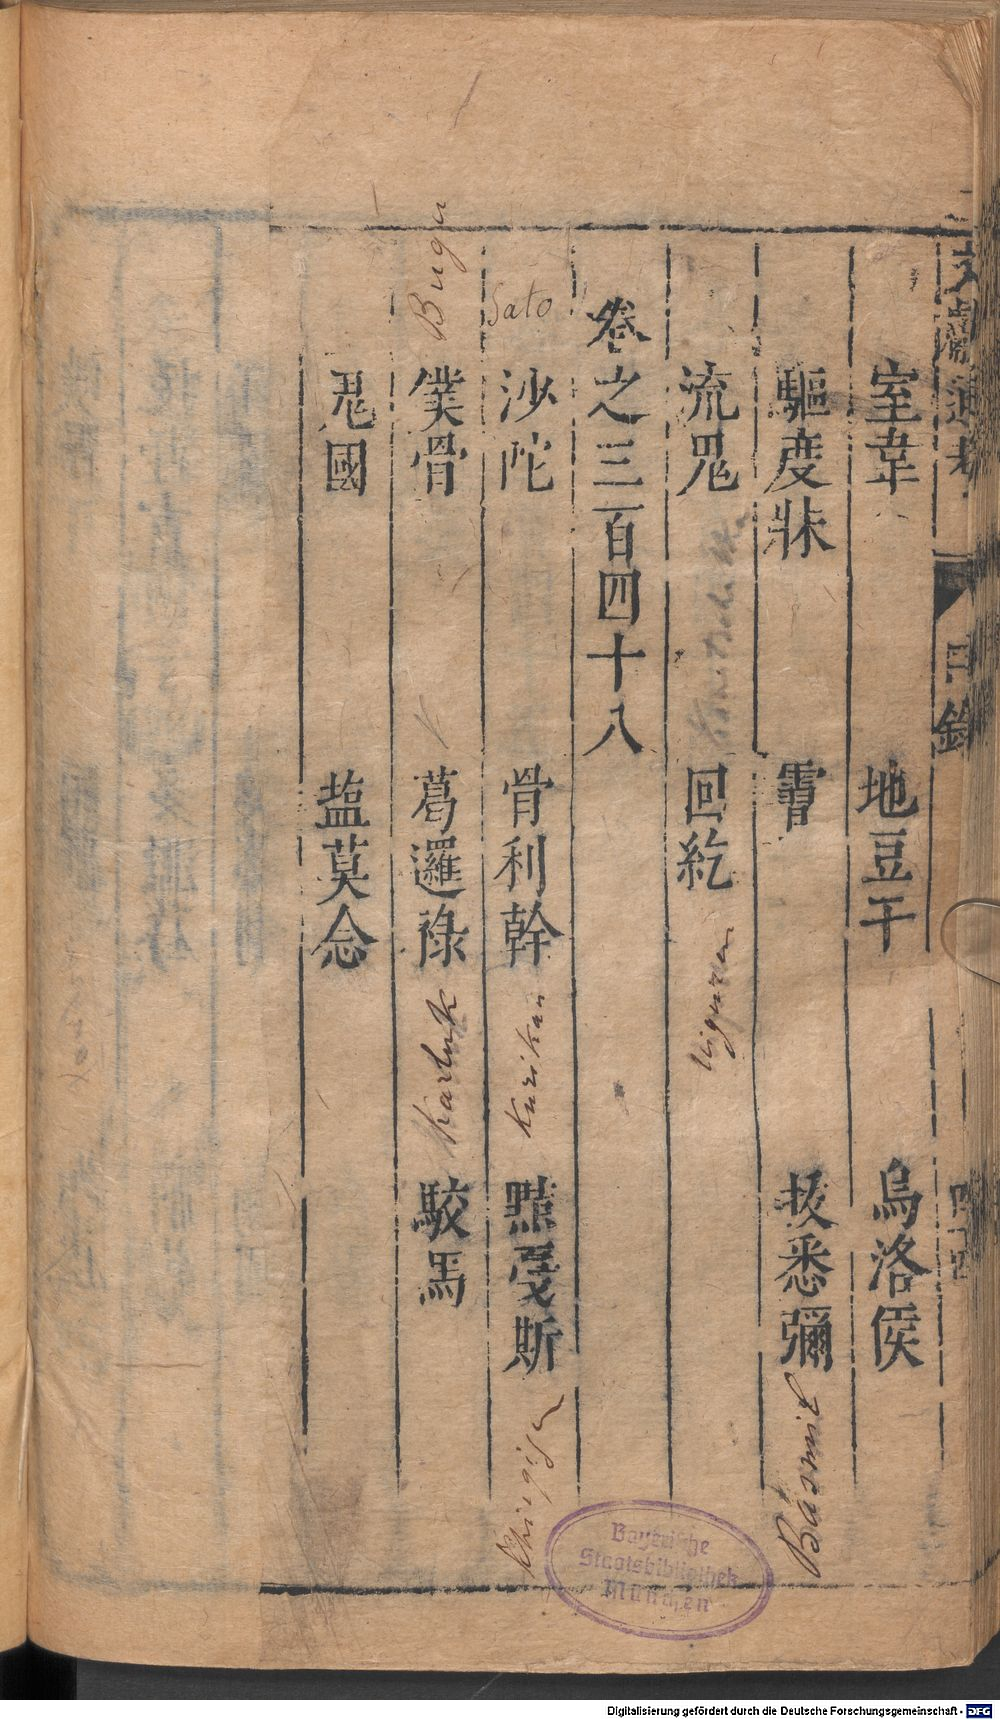 文獻通考 目錄
室韋 地豆干 烏洛侯
驅度寐 霫 拔悉彌 Basmil
流鬼 回紇 Uiguren
卷之三百四十八
Sato 沙陀 骨利幹 Kurikan 黠戛斯 Khirgisen
Bugu 僕骨 葛邏祿 Karluk 駮馬
鬼國 盐莫念
Bayerische
Staatsbibliothek
München
Digitalisierung gefördert durch die Deutsche Forschungsgemeinschaft - DFG